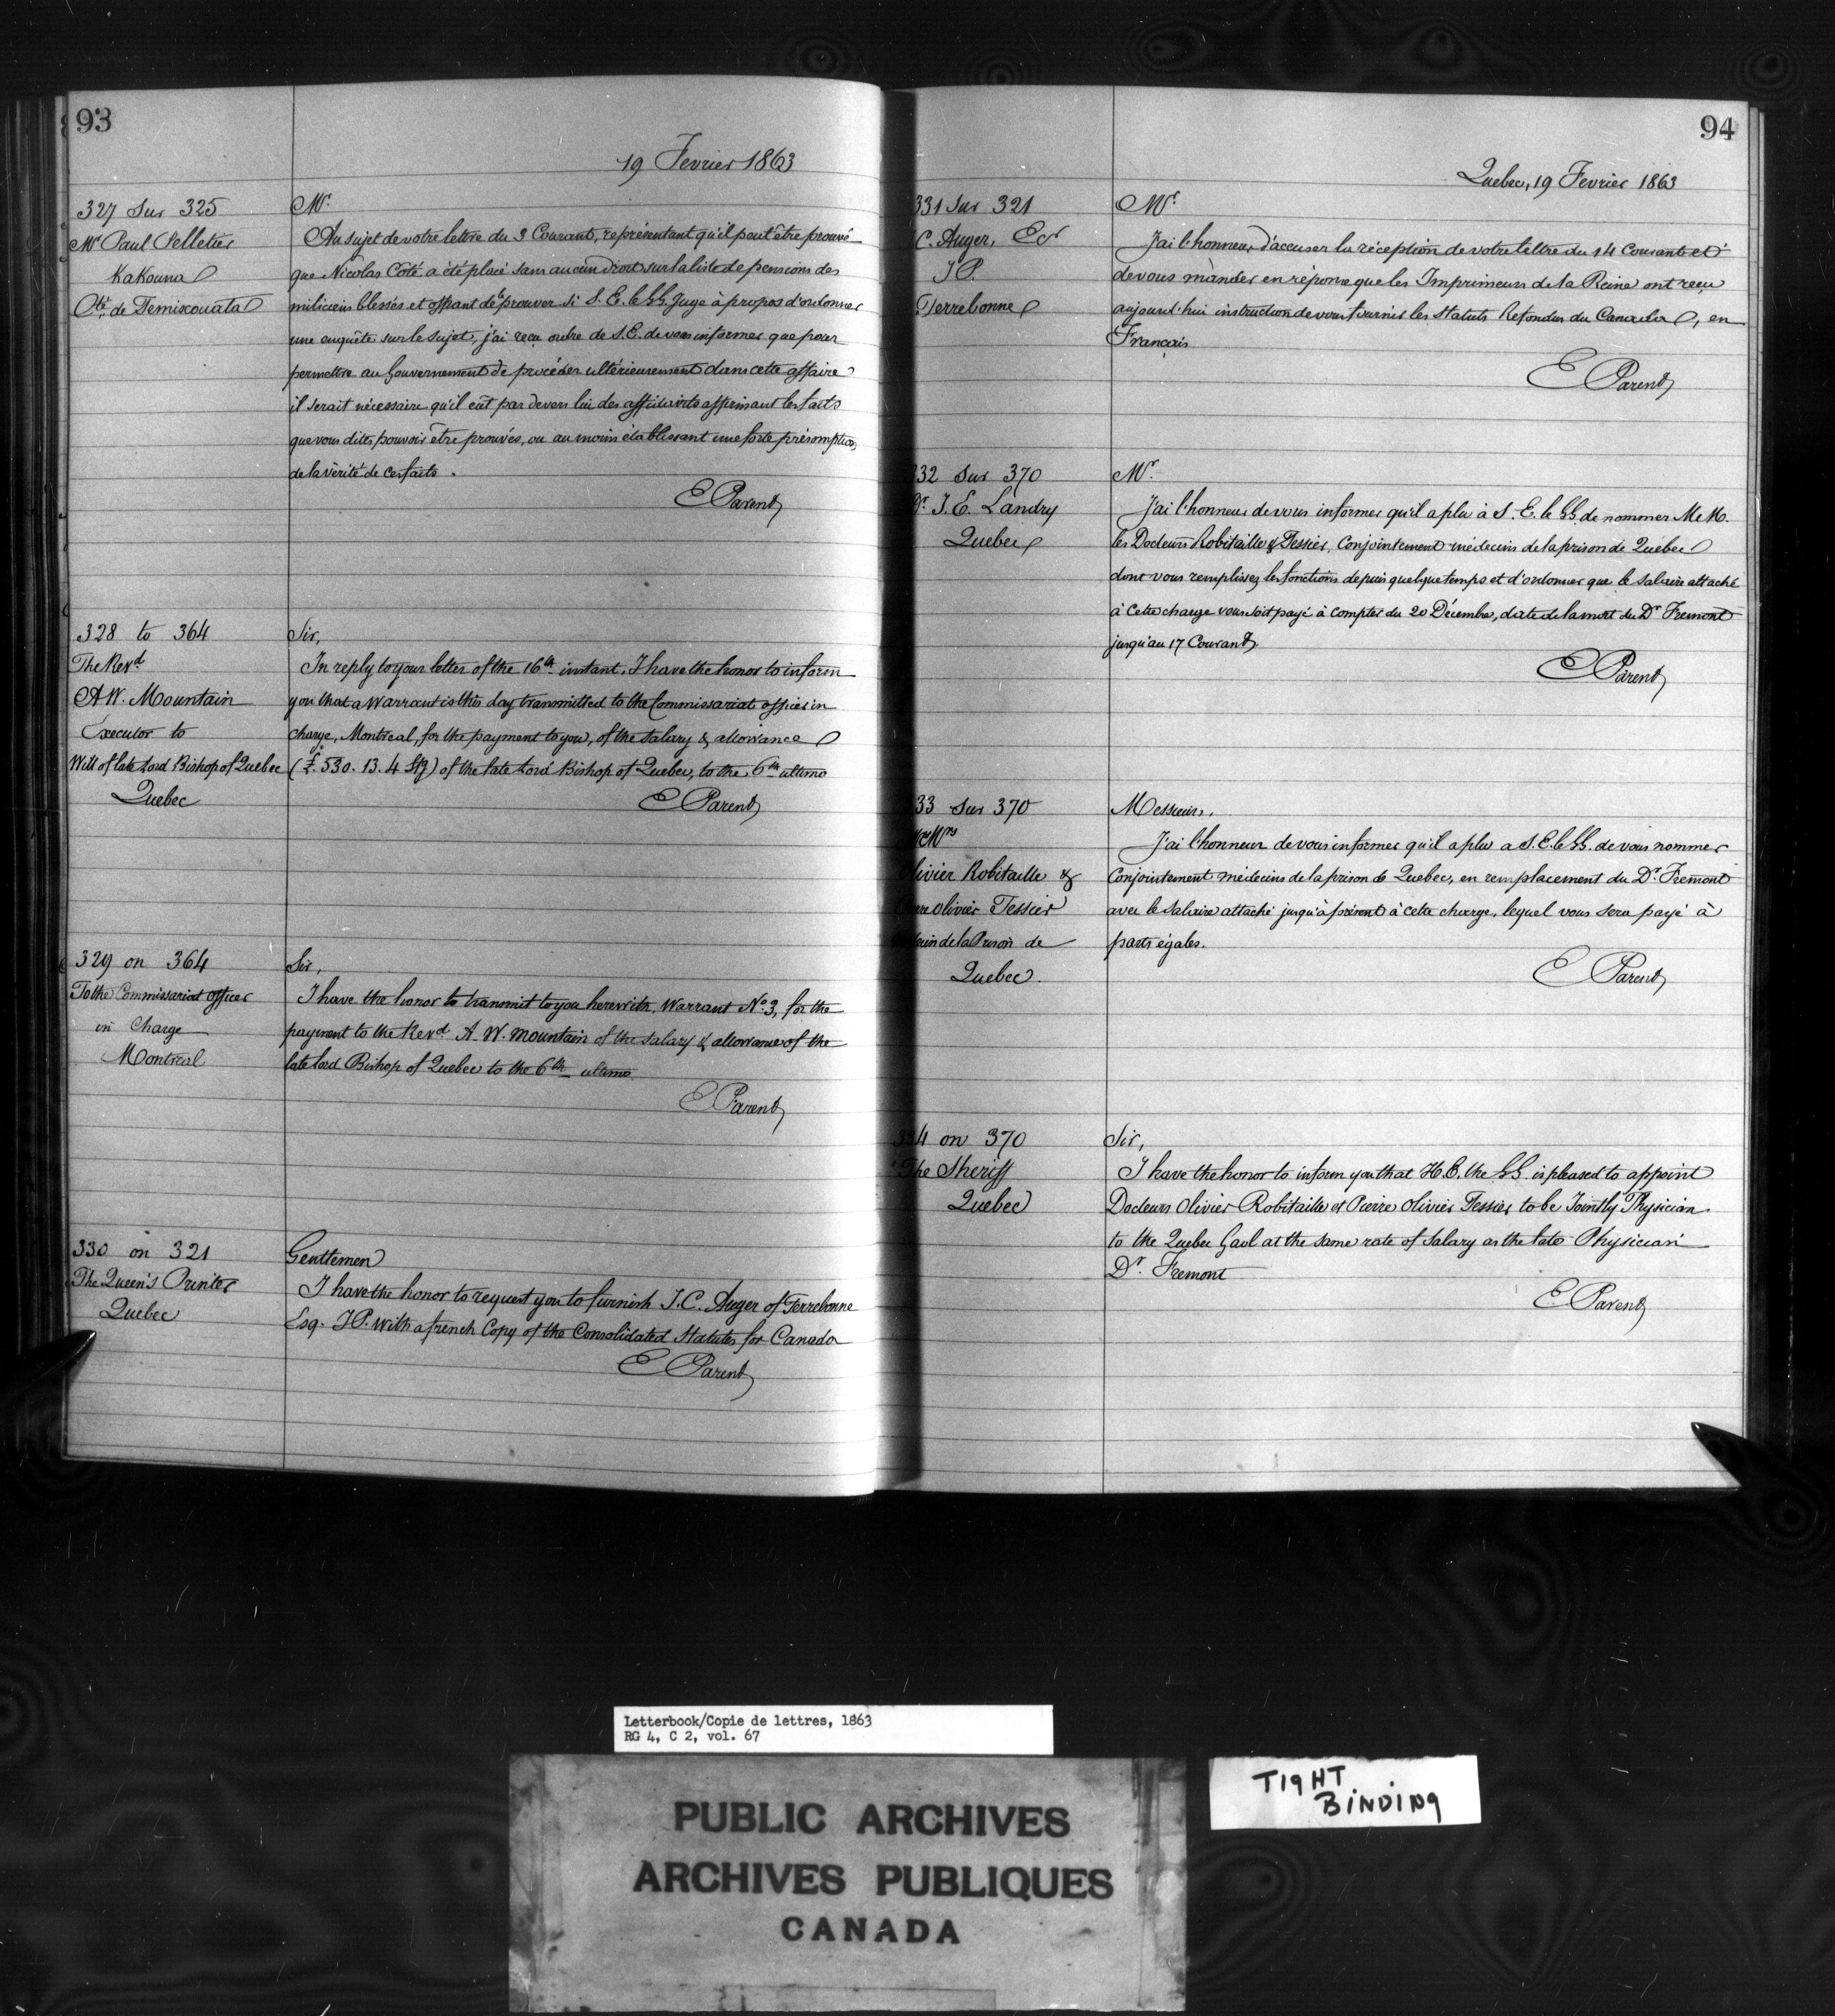 93
19 Fevrier 1863
327 Sur 325
Mr Paul Pelletier
Kakouna
Cté de Temiscouata
Mr.
Au sujet de votre lettre du 3 Courant, représentant qu'il peut être prouvé
que Nicolas Coté a été placé sans aucun droit sur la liste de pensions des
miliciens blessés et offrant de le prouver si S. E. le GG. juge à propos d'ordonner
une enquête sur le sujet, j'ai reçu ordre de S. E. de vous informer que pour
permettre au Gouvernement de procéder ultérieurement dans cette affaire
il serait nécessaire qu'il eût par devers lui des affidavits affirmant les faits
que vous dites pouvoir être prouvés, ou au moins établissant une forte présomption
de la vérité de ces faits.
E Parent
328 to 364
The Revd
A W. Mountain
Executor to
Will of late Lord Bishop of Quebec
Quebec
Sir,
In reply to your letter of the 16th instant, I have the honor to inform
you that a Warrant is this day transmitted to the Commissariat officer in
charge, Montreal, for the payment to you, of the salary & allowance
(£. 530. 13. 4 Stg) of the late Lord Bishop of Quebec, to the 6th ultimo
E Parent
329 on 364
To the Commissariat officer
in Charge
Montreal
Sir,
I have the honor to transmit to you herewith, Warrant No. 3, for the
payment to the Revd A. W. Mountain of the salary & allowance of the
late Lord Bishop of Quebec to the 6th ultimo
E Parent
330 on 321
The Queen's Printer
Quebec
Gentlemen
I have the honor to request you to furnish J. C. Auger of Terrebonne
Esq. J P. with a french Copy of the Consolidated Statutes for Canada
E Parent
94
Quebec, 19 Fevrier 1863
331 Sur 321
C. Auger, Ecr
J P.
Terrebonne
Mr
J'ai l'honneur d'accuser la réception de votre lettre du 14 Courant et
de vous mander en réponse que les Imprimeurs de la Reine ont reçu
aujourd'hui instruction de vous fournir les Statuts Refondus du Canada, en
Français
E Parent
332 Sur 370
Dr. J. E. Landry
Quebec
Mr.
J'ai l'honneur de vous informer qu'il a plu à S. E. le GG. de nommer M.M.
les Docteurs Robitaille & Tessier, Conjointement médecins de la prison de Quebec
dont vous remplissez les fonctions depuis quelque temps et d'ordonner que le salaire attaché
à cette charge vous soit payé à compter du 20 Décembre, date de la mort du Dr Fremont
jusqu'au 17 Courant
E Parent
33 Sur 370
MMrs
Olivier Robitaille &
Pierre Olivier Tessier
Médecin de la Prison de
Quebec.
Messieurs,
J'ai l'honneur de vous informer qu'il a plu a S. E. le GG. de vous nommer
Conjointement médecins de la prison de Quebec, en remplacement du Dr. Fremont
avec le salaire attaché jusqu'à présent à cette charge, lequel vous sera payé à
parts égales.
E Parent
334 on 370
The Sheriff
Quebec
Sir,
I have the honor to inform you that H. E. the GG is pleased to appoint
Docteurs Olivier Robitaille et Pierre Olivier Tessier to be Jointly Physician
to the Quebec Gaol at the same rate of Salary as the late Physician
Dr. Fremont
E. Parent
Letterbook/Copie de lettres, 1863
RG 4, C 2, vol. 67
PUBLIC ARCHIVES
ARCHIVES PUBLIQUES
CANADA
TIGHT
BINDING